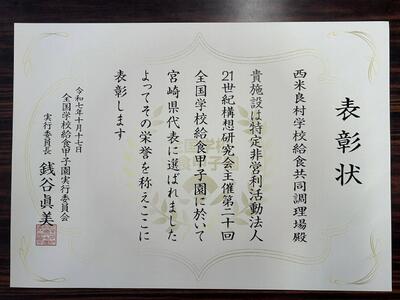 表彰状
西米良村学校給食共同調理場殿
貴施設は特定非営利活動法人
21世紀構想研究会主催第二十回
全国学校給食甲子園に於いて
宮崎県代表に選ばれました
よってその栄誉を称えここに
表彰します
令和七年十月十七日
全国学校給食甲子園実行委員会
実行委員長 銭谷眞美